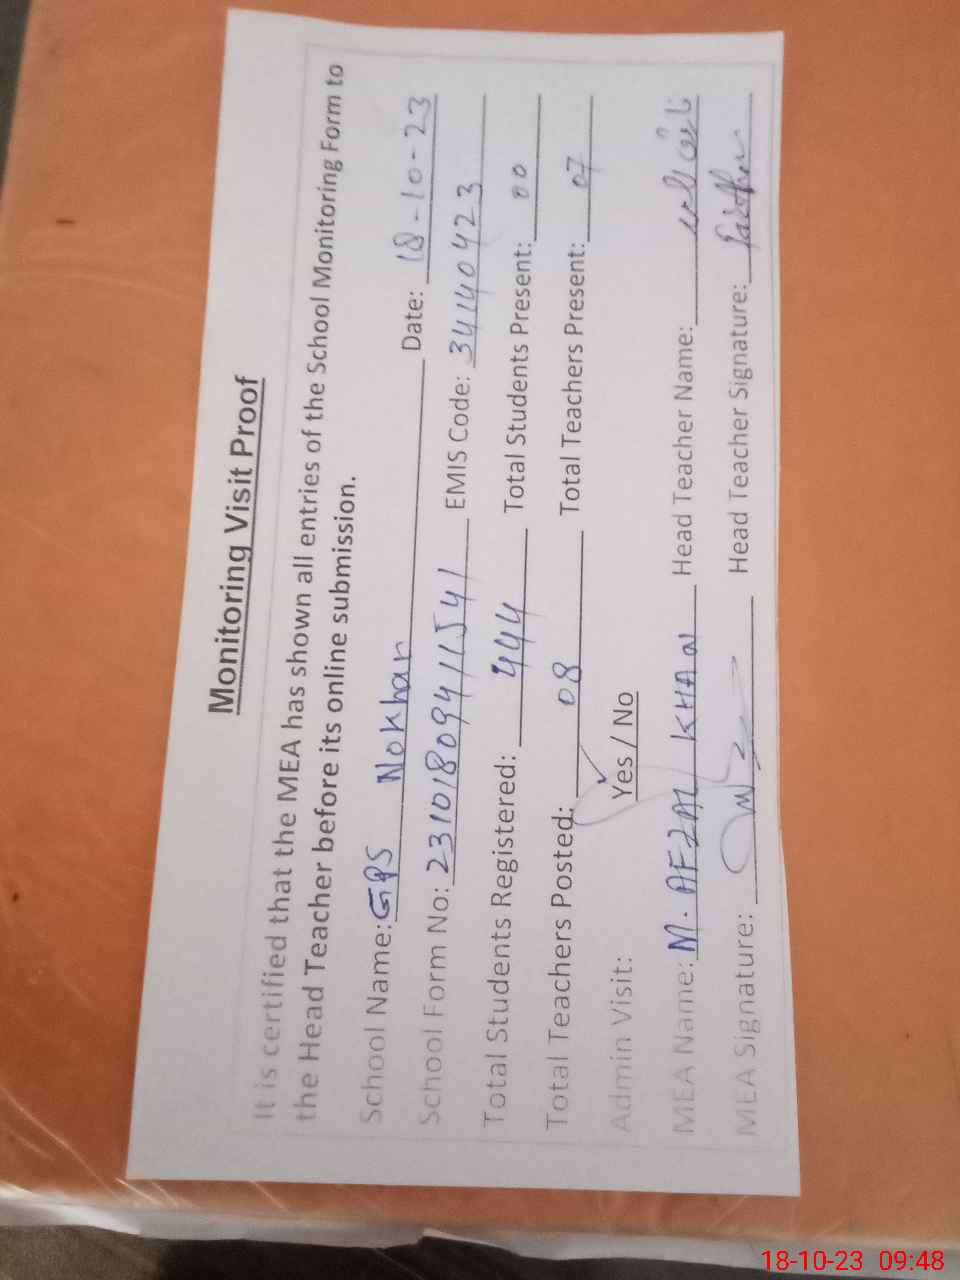 Monitoring Visit Proof
It is certified that the MEA has shown all entries of the School Monitoring Form to
the Head Teacher before its online submission.
School Name: GPS Nokhar Date: 18-10-23
School Form No: 23101809411541 EMIS Code: 34140423
Total Students Registered: 444 Total Students Present: 00
Total Teachers Posted: 08 Total Teachers Present: 07
Admin Visit: Yes / No
MEA Name: M. AFZAL KHAN Head Teacher Name:
MEA Signature: Head Teacher Signature:
18-10-23 09:48